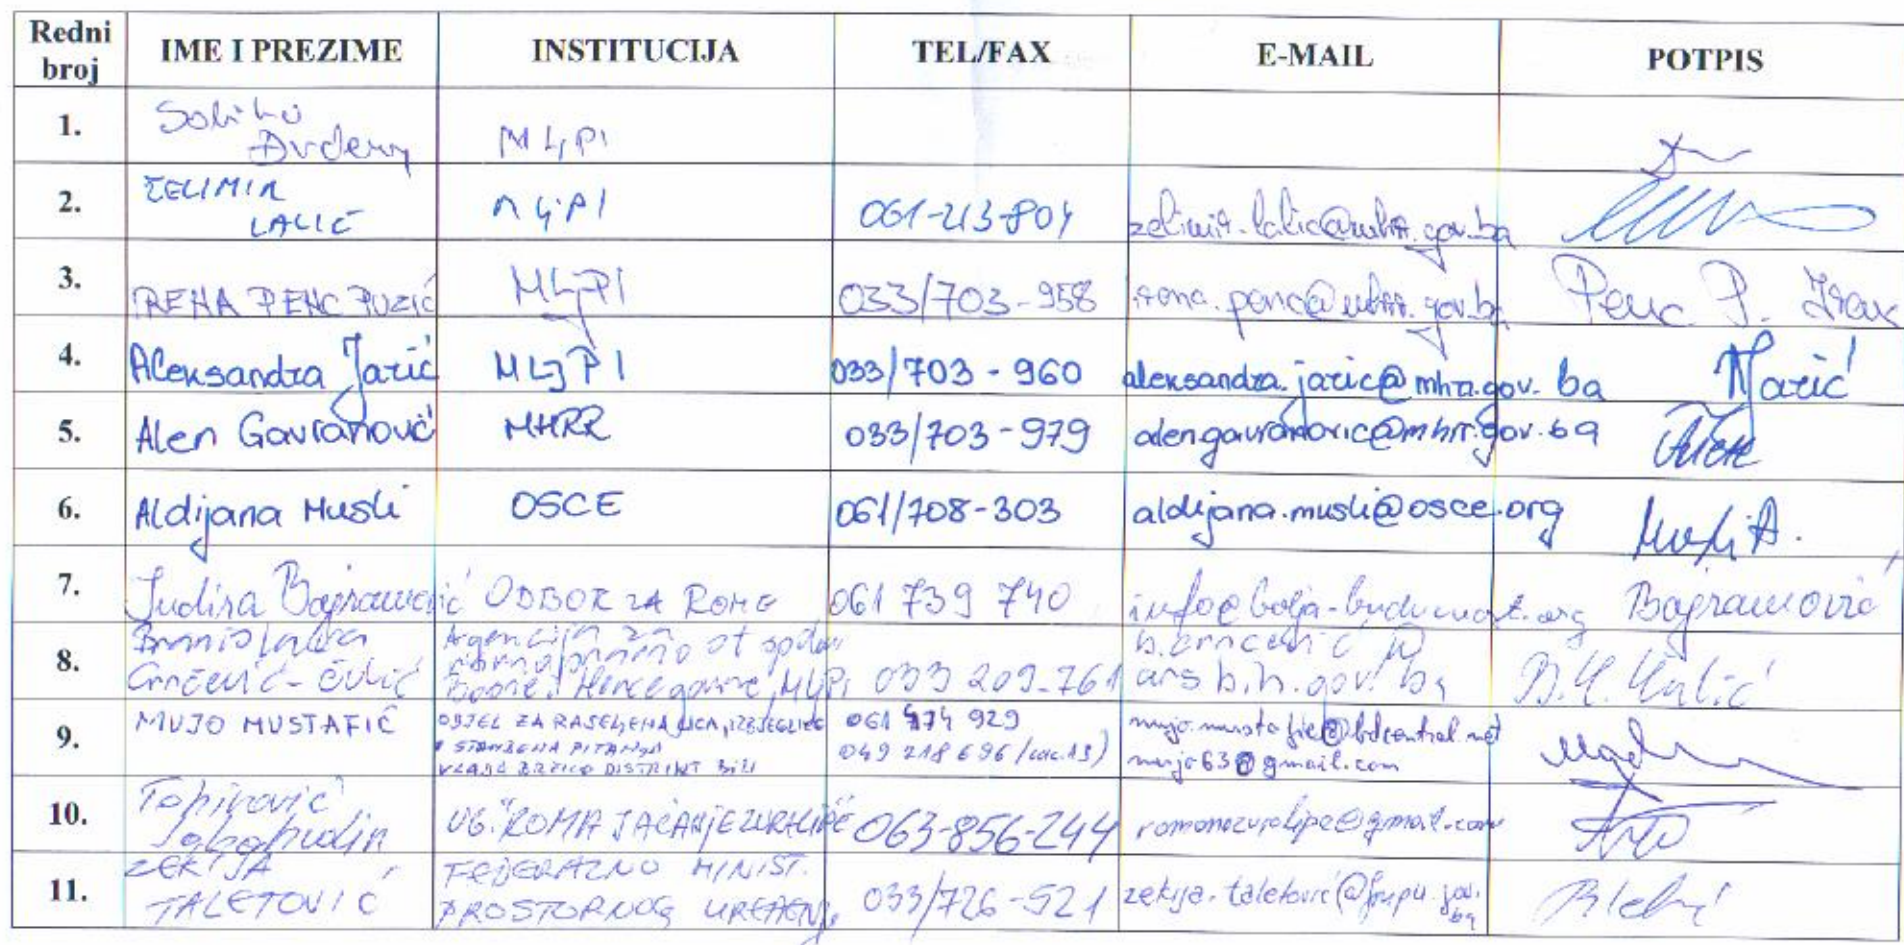 Redni broj IME I PREZIME INSTITUCIJA TEL/FAX E-MAIL POTPIS
1. MLjPI
2. ŽELIMIR LALIĆ MLjPI 061-213-804 zelimir.lalic@mhrr.gov.ba
3. IRENA PENC PUZIĆ MLjPI 033/703-958 irena.penc@mhrr.gov.ba Penc P.
4. Aleksandra Jarić MLJPI 033/703-960 aleksandra.jaric@mhrr.gov.ba Jarić
5. Alen Gavranović MHRR 033/703-979 alen.gavranovic@mhrr.gov.ba
6. Aldijana Musli OSCE 061/708-303 aldijana.musli@osce.org Musli A.
7. Indira Bajramović ODBOR ZA ROME 061 739 740 info@bolja-buducnost.org Bajramović
8. Crnčević-Čulić Agencija za Bosne i Hercegovine, MLJPI 033 209-761 b.crncevic@
arsbih.gov.ba
9. MUJO MUSTAFIĆ ODJEL ZA RASELJENA LICA, IZBJEGLICE 061 174 929 mujo.mustafic@bdcentral.net
I STAMBENA PITANJA 049 218 696 (loc.13) mujo63@gmail.com
VLADA BRČKO DISTRIKT BiH
10. Topirović UG. "ROMA 063-856-244 romanozuralipe@gmail.com
11. ZEKIJA TALETOVIĆ FEDERALNO MINIST. PROSTORNOG UREĐENJ. 033/726-521 zekija.taletovic@fmpu.gov.ba